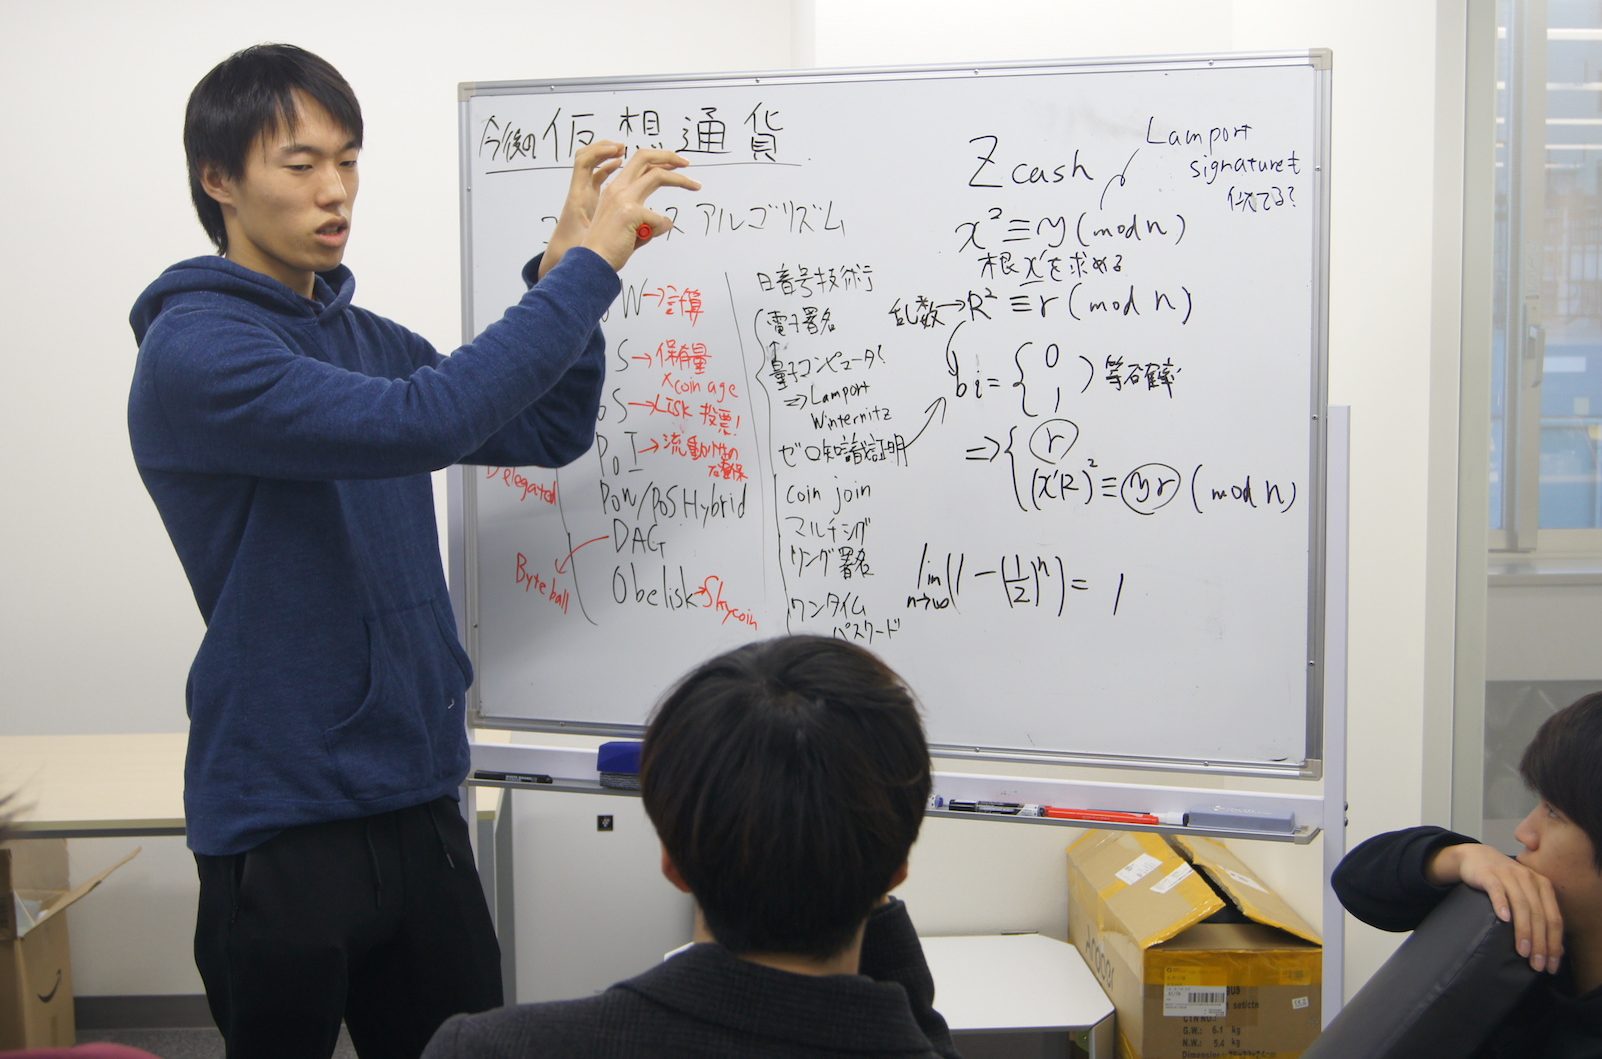 今後の仮想通貨
アルゴリズム
W→計算
S→保有量
×coin age
S→LISK 投票!
PoI→流動性の
確保
Delegated
PoW/PoS Hybrid
DAG
Byteball
Obelisk→Skycoin
暗号技術
電子署名
量子コンピュータ!
⇒Lamport
Winternitz
ゼロ知識証明
coin join
リング署名
ワンタイム
パスワード
Zcash
Lamport
signatureも
似てる?
x² ≡ y (mod n)
根xを求める
乱数→R² ≡ r (mod n)
bi = { 0
1 ) 等確率
⇒ { r
(xR)² ≡ yr (mod n)
lim n→∞ (1 − (1/2)ⁿ) = 1
G.W.: 6.1 kg
N.W.: 5.4 kg